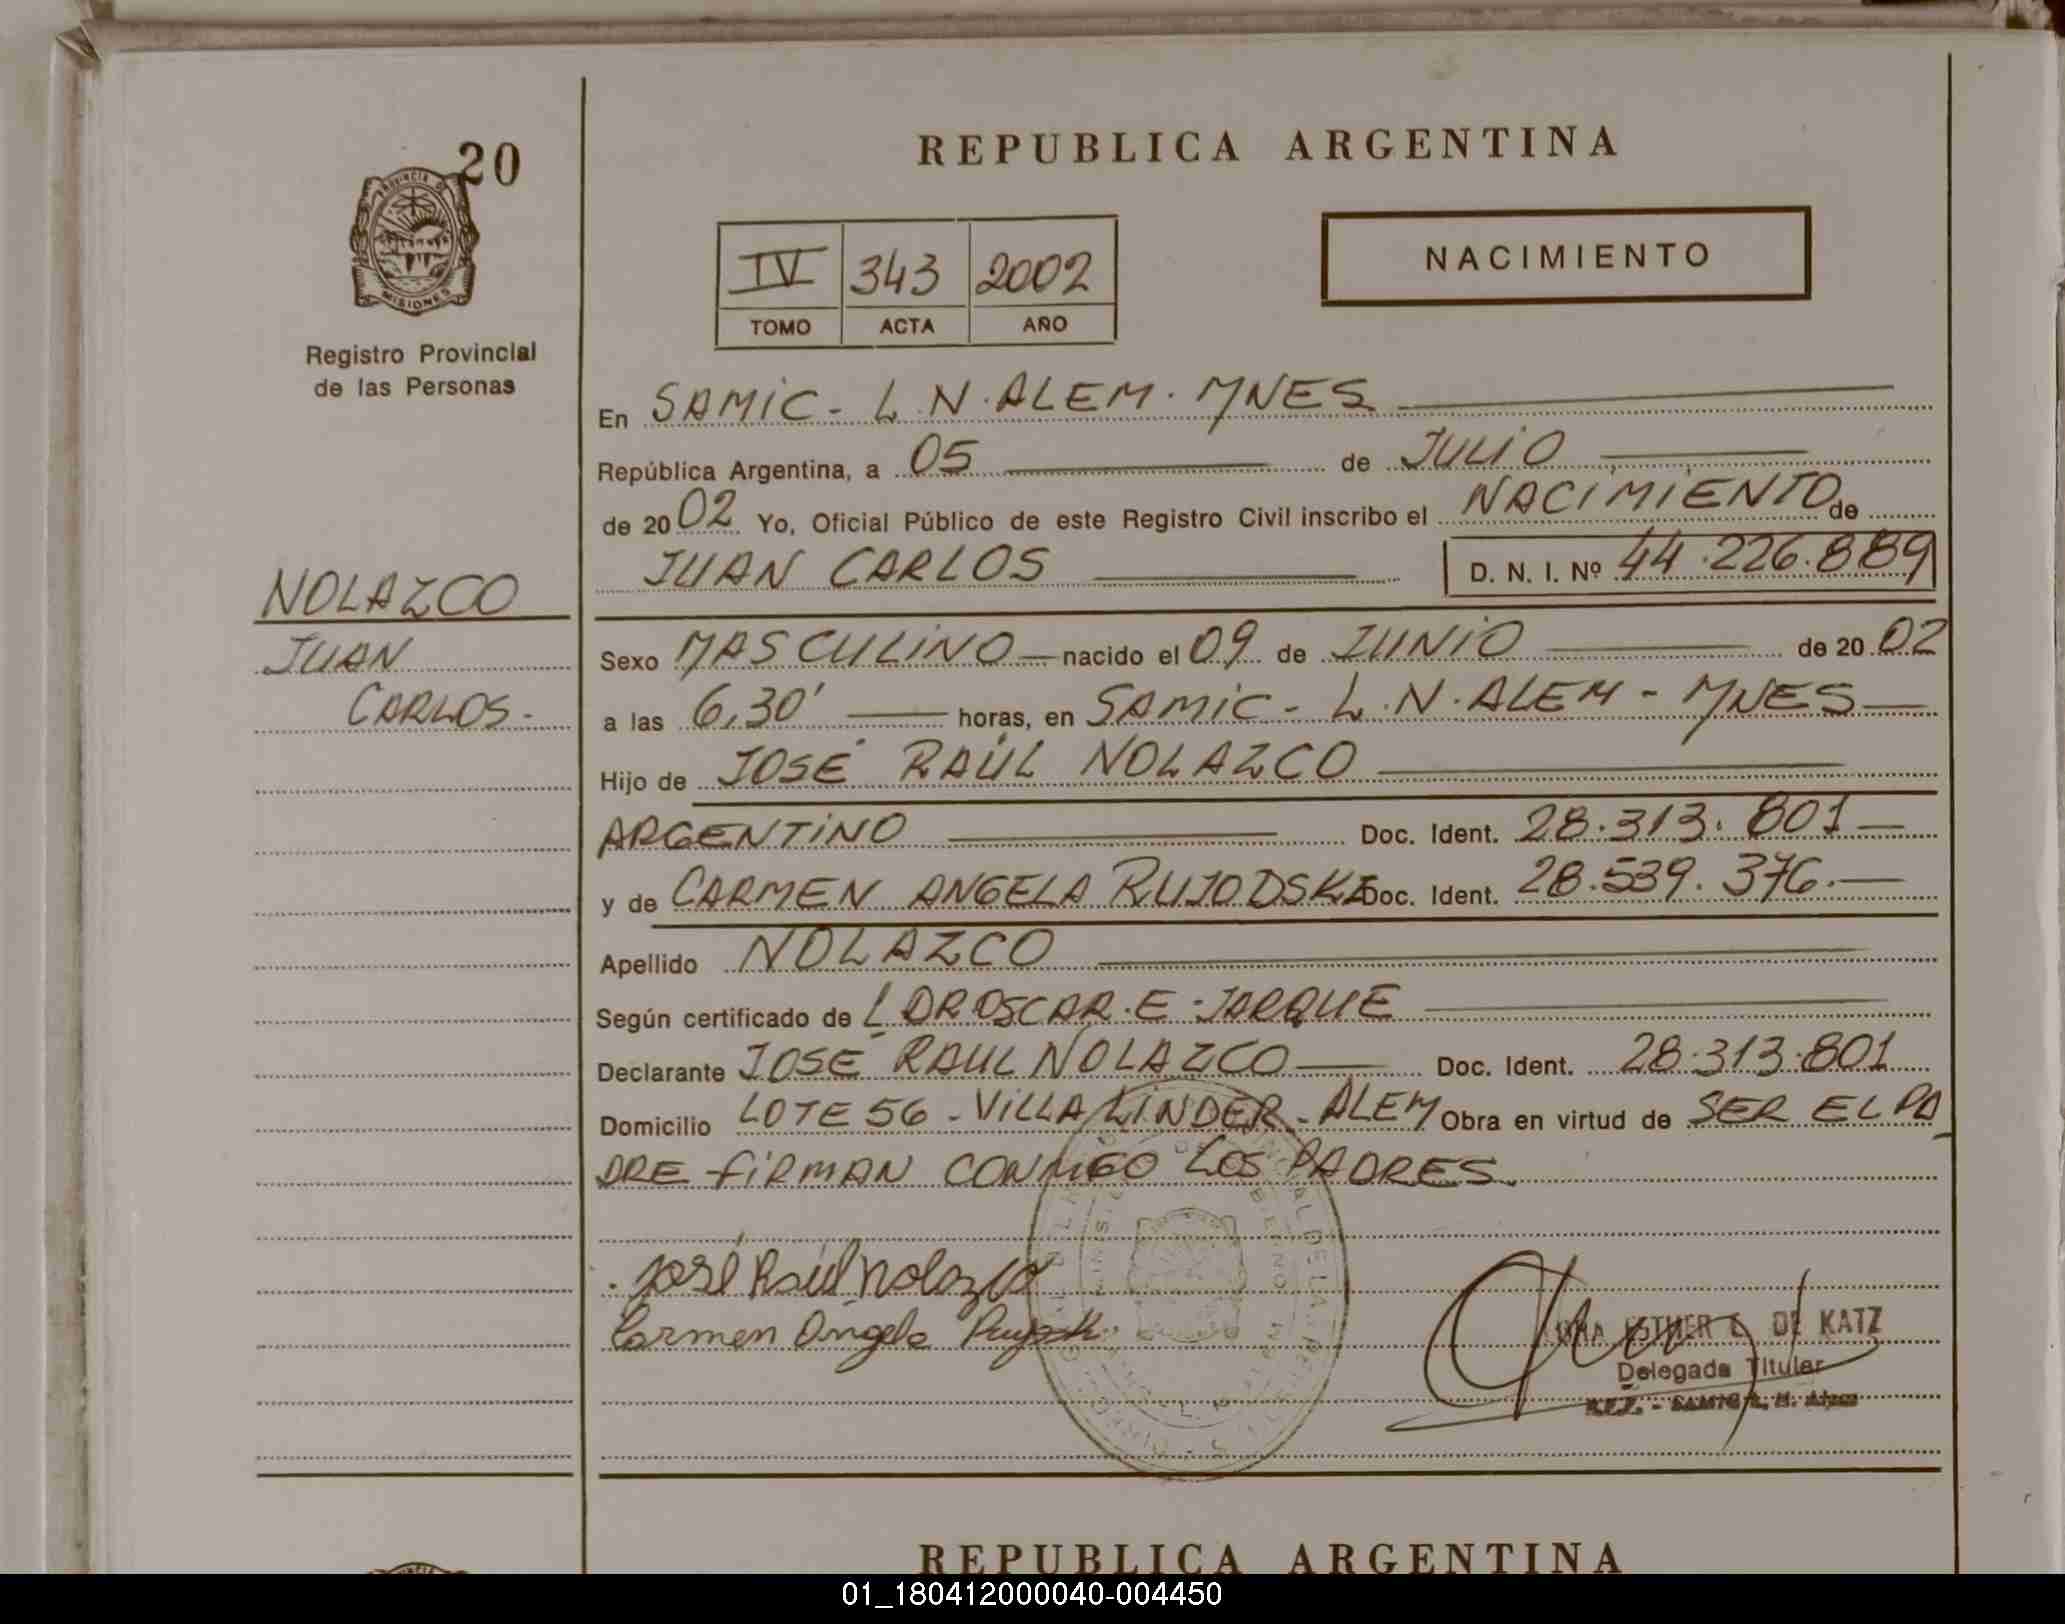 20
PROVINCIA DE
MISIONES
Registro Provincial
de las Personas
NOLAZCO
JUAN
CARLOS.-
REPUBLICA ARGENTINA
IV 343 2002
TOMO ACTA AÑO
NACIMIENTO
En SAMIC - L.N. ALEM. MNES
República Argentina, a 05 de JULIO
de 2002 Yo, Oficial Público de este Registro Civil inscribo el NACIMIENTO de
JUAN CARLOS D. N. I. Nº 44.226.889
Sexo MASCULINO nacido el 09 de JUNIO de 2002
a las 6,30' horas, en SAMIC - L.N. ALEM - MNES
Hijo de JOSÉ RAÚL NOLAZCO
ARGENTINO Doc. Ident. 28.313.801
y de CARMEN ANGELA RUJODSKI Doc. Ident. 28.539.376.
Apellido NOLAZCO
Según certificado de DR OSCAR. E. JARQUE
Declarante JOSÉ RAUL NOLAZCO Doc. Ident. 28.313.801
Domicilio LOTE 56 - VILLA LINDER - ALEM Obra en virtud de SER EL PA
DRE - FIRMAN CONMIGO LOS PADRES.
José Raúl Nolazco
Carmen Angela
ESTHER E. DE KATZ
Delegada Titular
REPUBLICA ARGENTINA
01_180412000040-004450